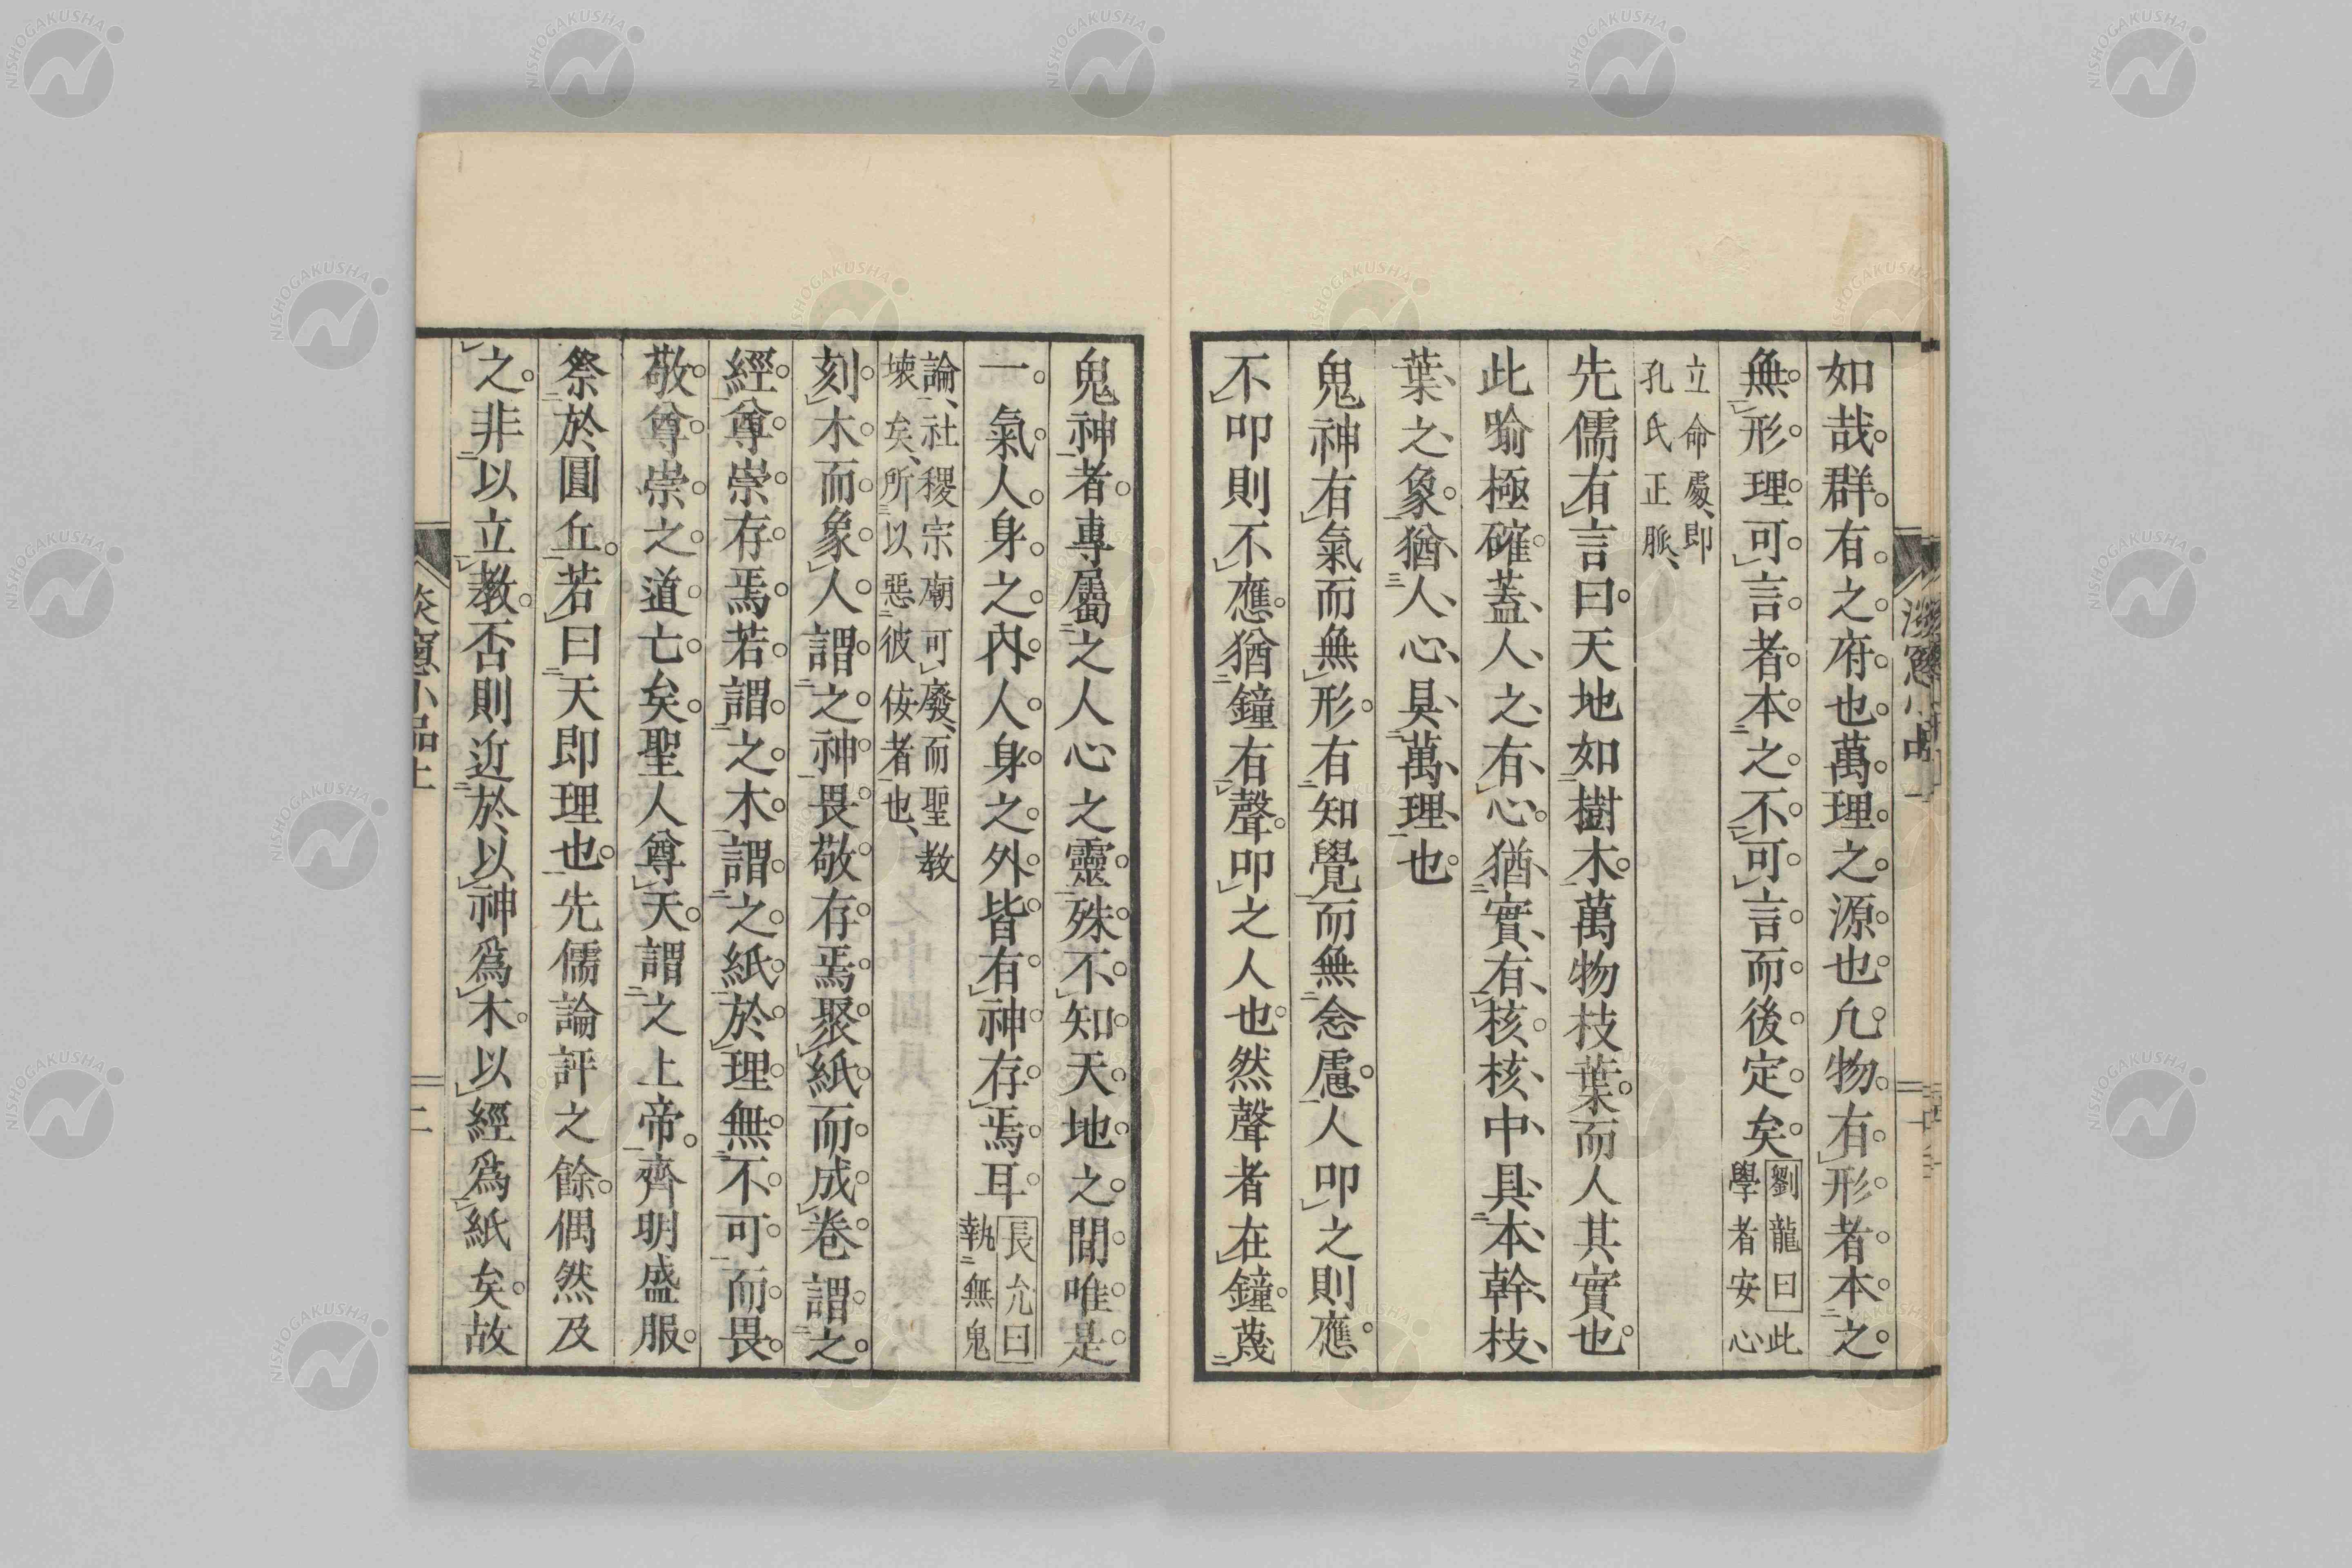 如哉群有之府也萬理之源也凢物有形者本之
無形理可言者本之不可言而後定矣劉龍曰此學者安心
立命處即孔氏正脈
先儒有言曰天地如樹木萬物枝葉而人其實也
此喻極確蓋人之有心猶實有核核中具本幹枝
葉之象猶人心具萬理也
鬼神有氣而無形有知覺而無念慮人叩之則應
不叩則不應猶鐘有聲叩之人也然聲者在鐘蔑
鬼神者專屬之人心之靈殊不知天地之間唯是
一氣人身之內人身之外皆有神存焉耳長允曰執無鬼
論社稷宗廟可廢而聖教壞矣所以惡彼侫者也
刻木而象人謂之神畏敬存焉聚紙而成卷謂之
經尊崇存焉若謂之木謂之紙於理無不可而畏
敬尊崇之道亡矣聖人尊天謂之上帝齊明盛服
祭於圓丘若曰天即理也先儒論評之餘偶然及
之非以立教否則近於以神爲木以經爲紙矣故
小品上
二